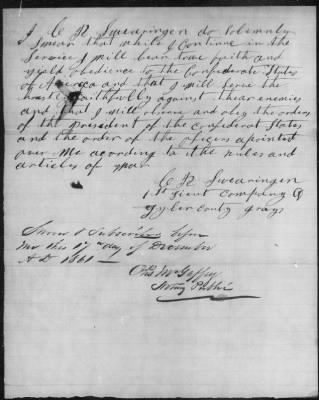 I C H Swearingen do Solemnly
Swear that while I Continue in the
Service I will bear true faith and
yeald obedience to the Confederate States
of America and that I will serve the
honestly & faithfully against thear enemies
and that I will observe and obey the orders
of the President of the Confederat States
and the order of the officers apointed
over Me according to the rules and
articles of war
C H Swearingen
1st Lieut Company
Tyler County Grays
Sworn & Subscribed before
me this 17th day of December
AD 1861 —
Notary Public